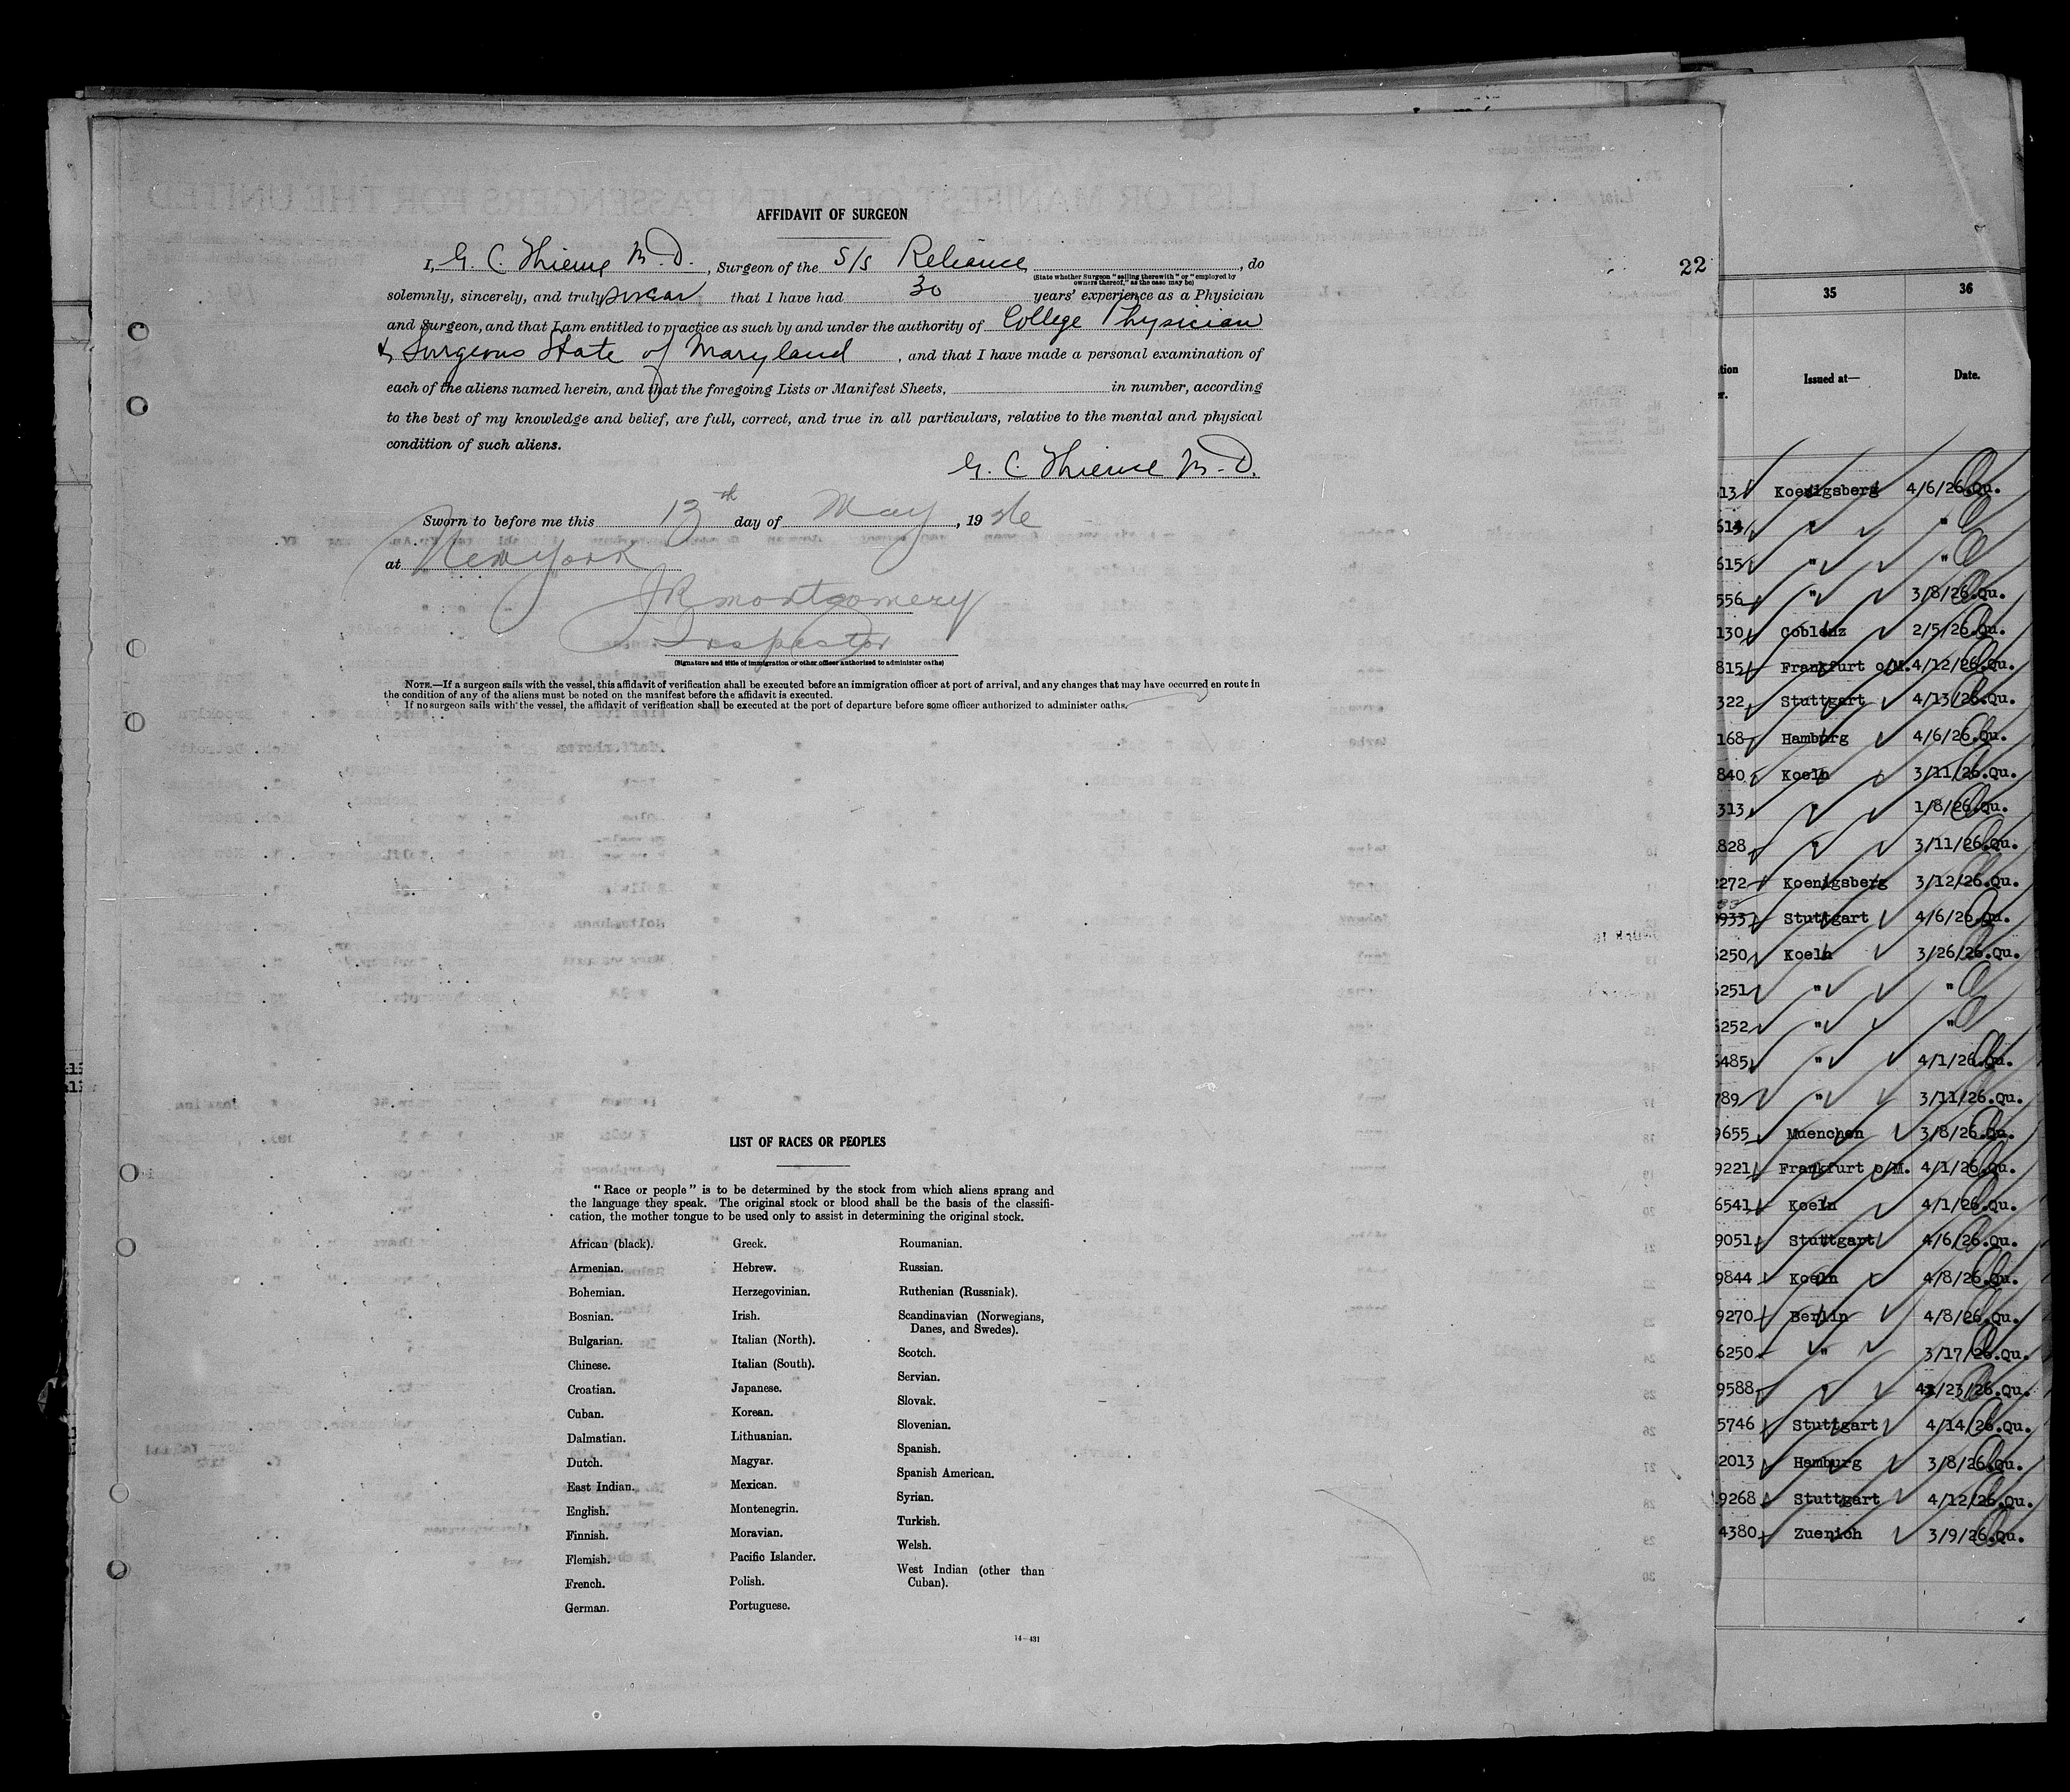 AFFIDAVIT OF SURGEON
I, G. C. Thieme M. D., Surgeon of the S/s Reliance, do
(State whether Surgeon "sailing therewith" or "employed by
owners thereof," as the case may be)
solemnly, sincerely, and truly swear that I have had 30 years' experience as a Physician
and Surgeon, and that I am entitled to practice as such by and under the authority of College Physician
& Surgeons State of Maryland, and that I have made a personal examination of
each of the aliens named herein, and that the foregoing Lists or Manifest Sheets, in number, according
to the best of my knowledge and belief, are full, correct, and true in all particulars, relative to the mental and physical
condition of such aliens.
G. C. Thieme M. D.
Sworn to before me this 13th day of May, 1926
at New York
JR Montgomery
Inspector
(Signature and title of immigration or other officer authorized to administer oaths)
NOTE.—If a surgeon sails with the vessel, this affidavit of verification shall be executed before an immigration officer at port of arrival, and any changes that may have occurred en route in
the condition of any of the aliens must be noted on the manifest before the affidavit is executed.
If no surgeon sails with the vessel, the affidavit of verification shall be executed at the port of departure before some officer authorized to administer oaths.
LIST OF RACES OR PEOPLES
"Race or people" is to be determined by the stock from which aliens sprang and
the language they speak. The original stock or blood shall be the basis of the classifi-
cation, the mother tongue to be used only to assist in determining the original stock.
African (black).
Armenian.
Bohemian.
Bosnian.
Bulgarian.
Chinese.
Croatian.
Cuban.
Dalmatian.
Dutch.
East Indian.
English.
Finnish.
Flemish.
French.
German.
Greek.
Hebrew.
Herzegovinian.
Irish.
Italian (North).
Italian (South).
Japanese.
Korean.
Lithuanian.
Magyar.
Mexican.
Montenegrin.
Moravian.
Pacific Islander.
Polish.
Portuguese.
Roumanian.
Russian.
Ruthenian (Russniak).
Scandinavian (Norwegians,
Danes, and Swedes).
Scotch.
Servian.
Slovak.
Slovenian.
Spanish.
Spanish American.
Syrian.
Turkish.
Welsh.
West Indian (other than
Cuban).
14—431
22
35 36
Issued at— Date.
13 Koenigsberg 4/6/26.Qu.
614 " "
615 " "
556 " 3/8/26.Qu.
130 Coblenz 2/5/26.Qu.
815 Frankfurt o/M. 4/12/26.Qu.
322 Stuttgart 4/13/26.Qu.
168 Hamburg 4/6/26.Qu.
840 Koeln 3/11/26.Qu.
313 " 1/8/26.Qu.
828 " 3/11/26.Qu.
2272 Koenigsberg 3/12/26.Qu.
933 Stuttgart 4/6/26.Qu.
6250 Koeln 3/26/26.Qu.
6251 " "
6252 " "
6485 " 4/1/26.Qu.
789 " 3/11/26.Qu.
9655 Muenchen 3/8/26.Qu.
9221 Frankfurt o/M. 4/1/26.Qu.
6541 Koeln 4/1/26.Qu.
9051 Stuttgart 4/6/26.Qu.
9844 Koeln 4/8/26.Qu.
9270 Berlin 4/8/26.Qu.
6250 " 3/17/26.Qu.
9588 " /23/26.Qu.
5746 Stuttgart 4/14/26.Qu.
2013 Hamburg 3/8/26.Qu.
9268 Stuttgart 4/12/26.Qu.
4380 Zuerich 3/9/26.Qu.